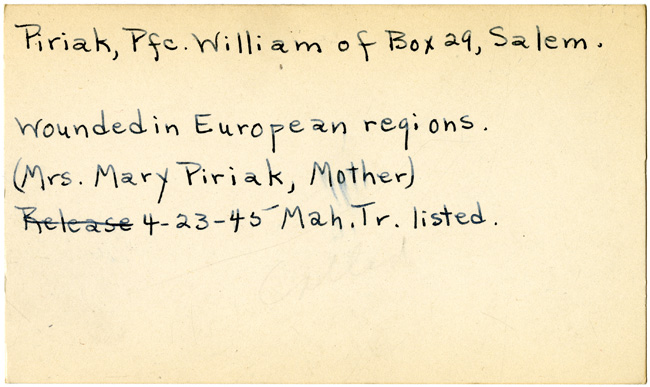 Piriak, Pfc. William of Box 29, Salem.
Wounded in European regions.
(Mrs. Mary Piriak, Mother)
Release 4-23-45 Mah. Tr. listed.